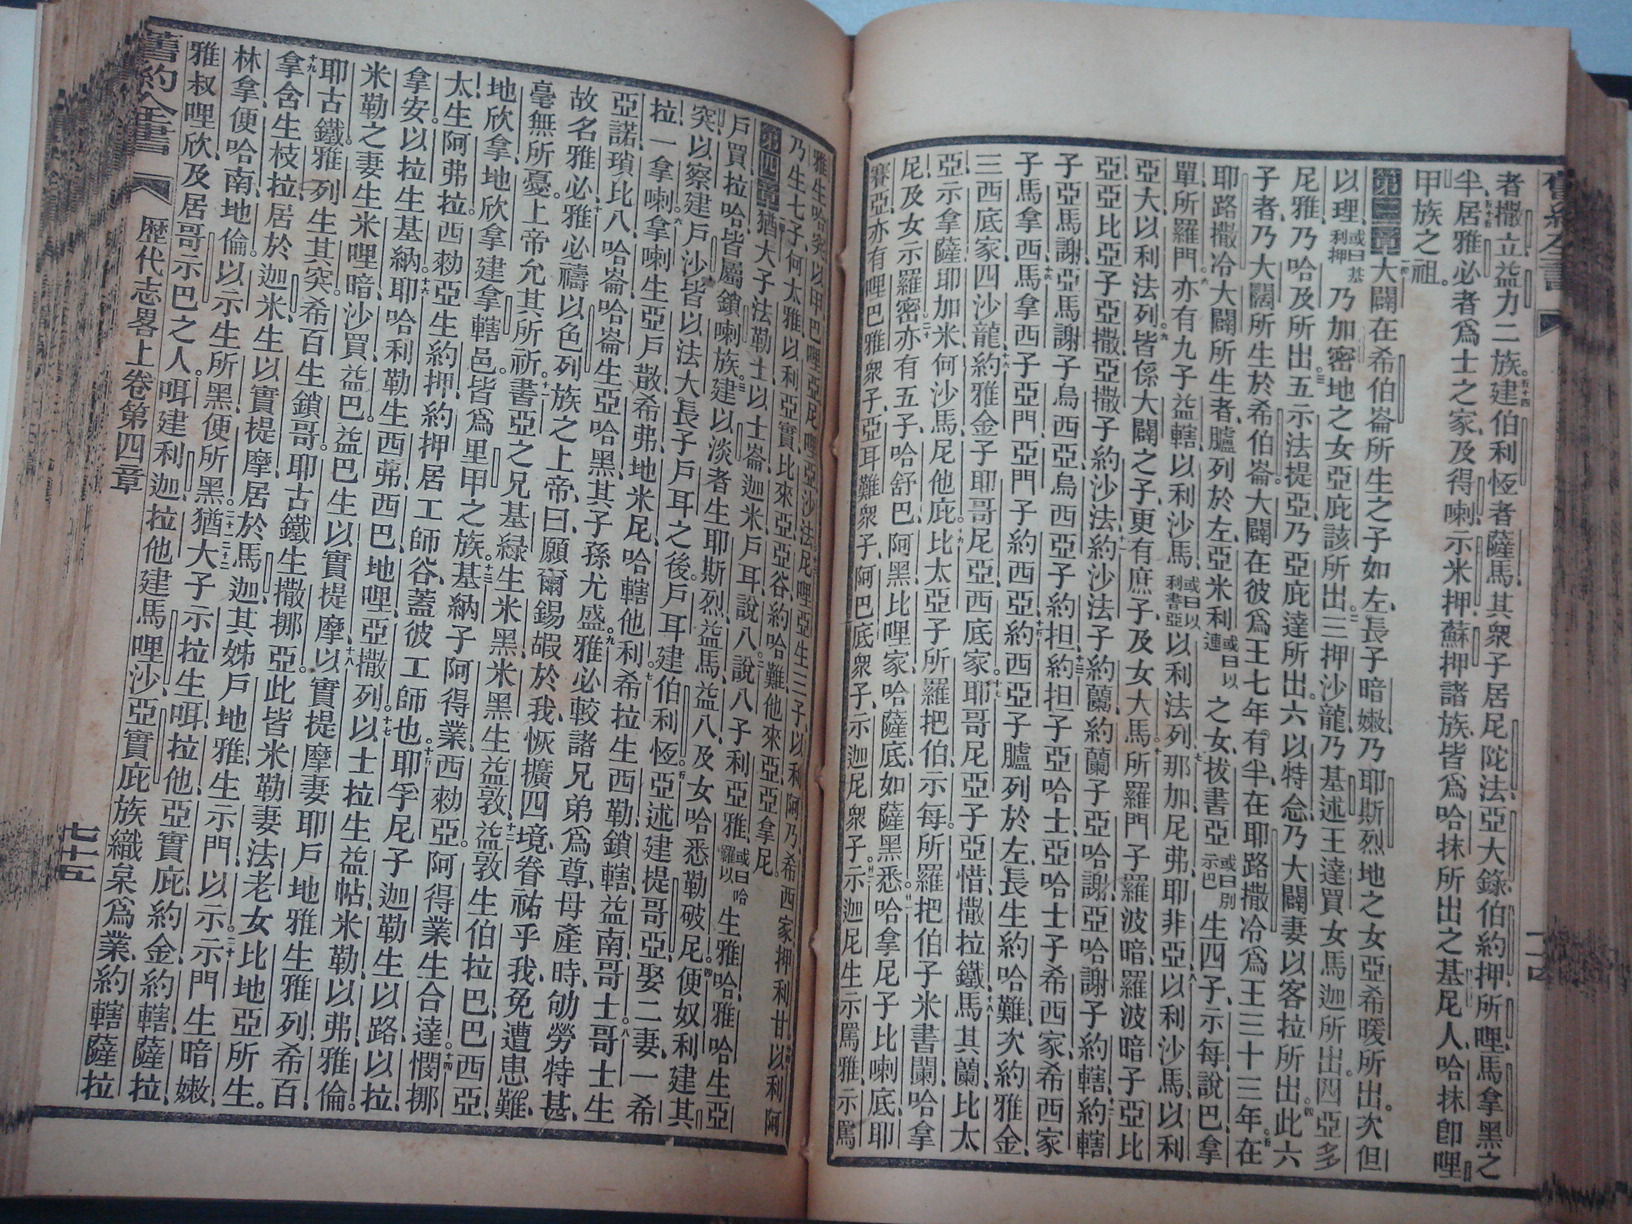 者撒立益力二族建伯利恆者薩馬其衆子居尼陀法亞大錄伯約押所哩馬拿黑之
半居雅必者爲士之家及得喇示米押蘇押諸族皆爲哈抹所出之基尼人哈抹卽哩
甲族之祖
第三章大闢在希伯崙所生之子如左長子暗嫩乃耶斯烈地之女亞希暖所出次但
以理或曰基利押乃加密地之女亞庇該所出三押沙龍乃基述王達買女馬迦所出四亞多
尼雅乃哈及所出五示法提亞乃亞庇達所出六以特念乃大闢妻以客拉所出此六
子者乃大闢所生於希伯崙大闢在彼爲王七年有半在耶路撒冷爲王三十三年在
耶路撒冷大闢所生者臚列於左亞米利或曰以連之女拔書亞或曰別示巴生四子示每說巴拿
單所羅門亦有九子益轄以利沙馬或曰以利書亞以利法列那加尼弗耶非亞以利沙馬以利
亞大以利法列皆係大闢之子更有庶子及女大馬所羅門子羅波暗羅波暗子亞比
亞亞比亞子亞撒亞撒子約沙法約沙法子約蘭約蘭子亞哈謝亞哈謝子約轄約轄
子亞馬謝亞馬謝子烏西亞烏西亞子約担約担子亞哈士亞哈士子希西家希西家
子馬拿西馬拿西子亞門亞門子約西亞約西亞子臚列於左長生約哈難次約雅金
三西底家四沙龍約雅金子耶哥尼亞西底家耶哥尼亞子亞惜撒拉鐵馬其蘭比太
亞示拿薩耶加米何沙馬尼他庇比太亞子所羅把伯示每所羅把伯子米書蘭哈拿
尼及女示羅密亦有五子哈舒巴阿黑比哩家哈薩底如薩黑悉哈拿尼子比喇底耶
賽亞亦有哩巴雅衆子亞耳難衆子阿巴底衆子示迦尼衆子示迦尼生示罵雅示罵
雅生哈突以甲巴哩亞尼哩亞沙法尼哩亞生三子以利阿乃希西家押利甘以利阿
乃生七子何太雅以利亞實比來亞亞谷約哈難他來亞亞拿尼
第四章猶大子法勒士以士崙迦米戶耳說八說八子利亞雅或曰哈羅以生雅哈雅哈生亞
戶買拉哈皆屬鎖喇族建以淡者生耶斯烈益馬益八及女哈悉勒破尼便奴利建其
突以察建戶沙皆以法大長子戶耳之後戶耳建伯利恆亞述建提哥亞娶二妻一希
拉一拿喇拿喇生亞戶散希弗地米尼哈轄他利希拉生西勒鎖轄益南哥士哥士生
亞諾瑣比八哈崙哈崙生亞哈黑其子孫尤盛雅必較諸兄弟爲尊母產時劬勞特甚
故名雅必雅必禱以色列族之上帝曰願爾錫嘏於我恢擴四境眷祐乎我免遭患難
毫無所憂上帝允其所祈書亞之兄基綠生米黑米黑生益敦益敦生伯拉巴巴西亞
地欣拿地欣拿建拿轄邑皆爲里甲之族基納子阿得業西勑亞阿得業生合達憫挪
太生阿弗拉西勑亞生約押約押居工師谷蓋彼工師也耶孚尼子迦勒生以路以拉
拿安以拉生基納耶哈利勒生西茀西巴地哩亞撒列以士拉生益帖米勒以弗雅倫
米勒之妻生米哩暗沙買益巴益巴生以實提摩以實提摩妻耶戶地雅生雅列希百
耶古鐵雅列生其突希百生鎖哥耶古鐵生撒挪亞此皆米勒妻法老女比地亞所生
拿含生枝拉居於迦米生以實提摩居於馬迦其姊戶地雅生示門以示示門生暗嫩
林拿便哈南地倫以示生所黑便所黑猶大子示拉生咡拉他亞實庇約金約轄薩拉
雅叔哩欣及居哥示巴之人咡建利迦拉他建馬哩沙亞實庇族織枲爲業約轄薩拉
舊約全書 歷代志畧上卷第四章 七十五